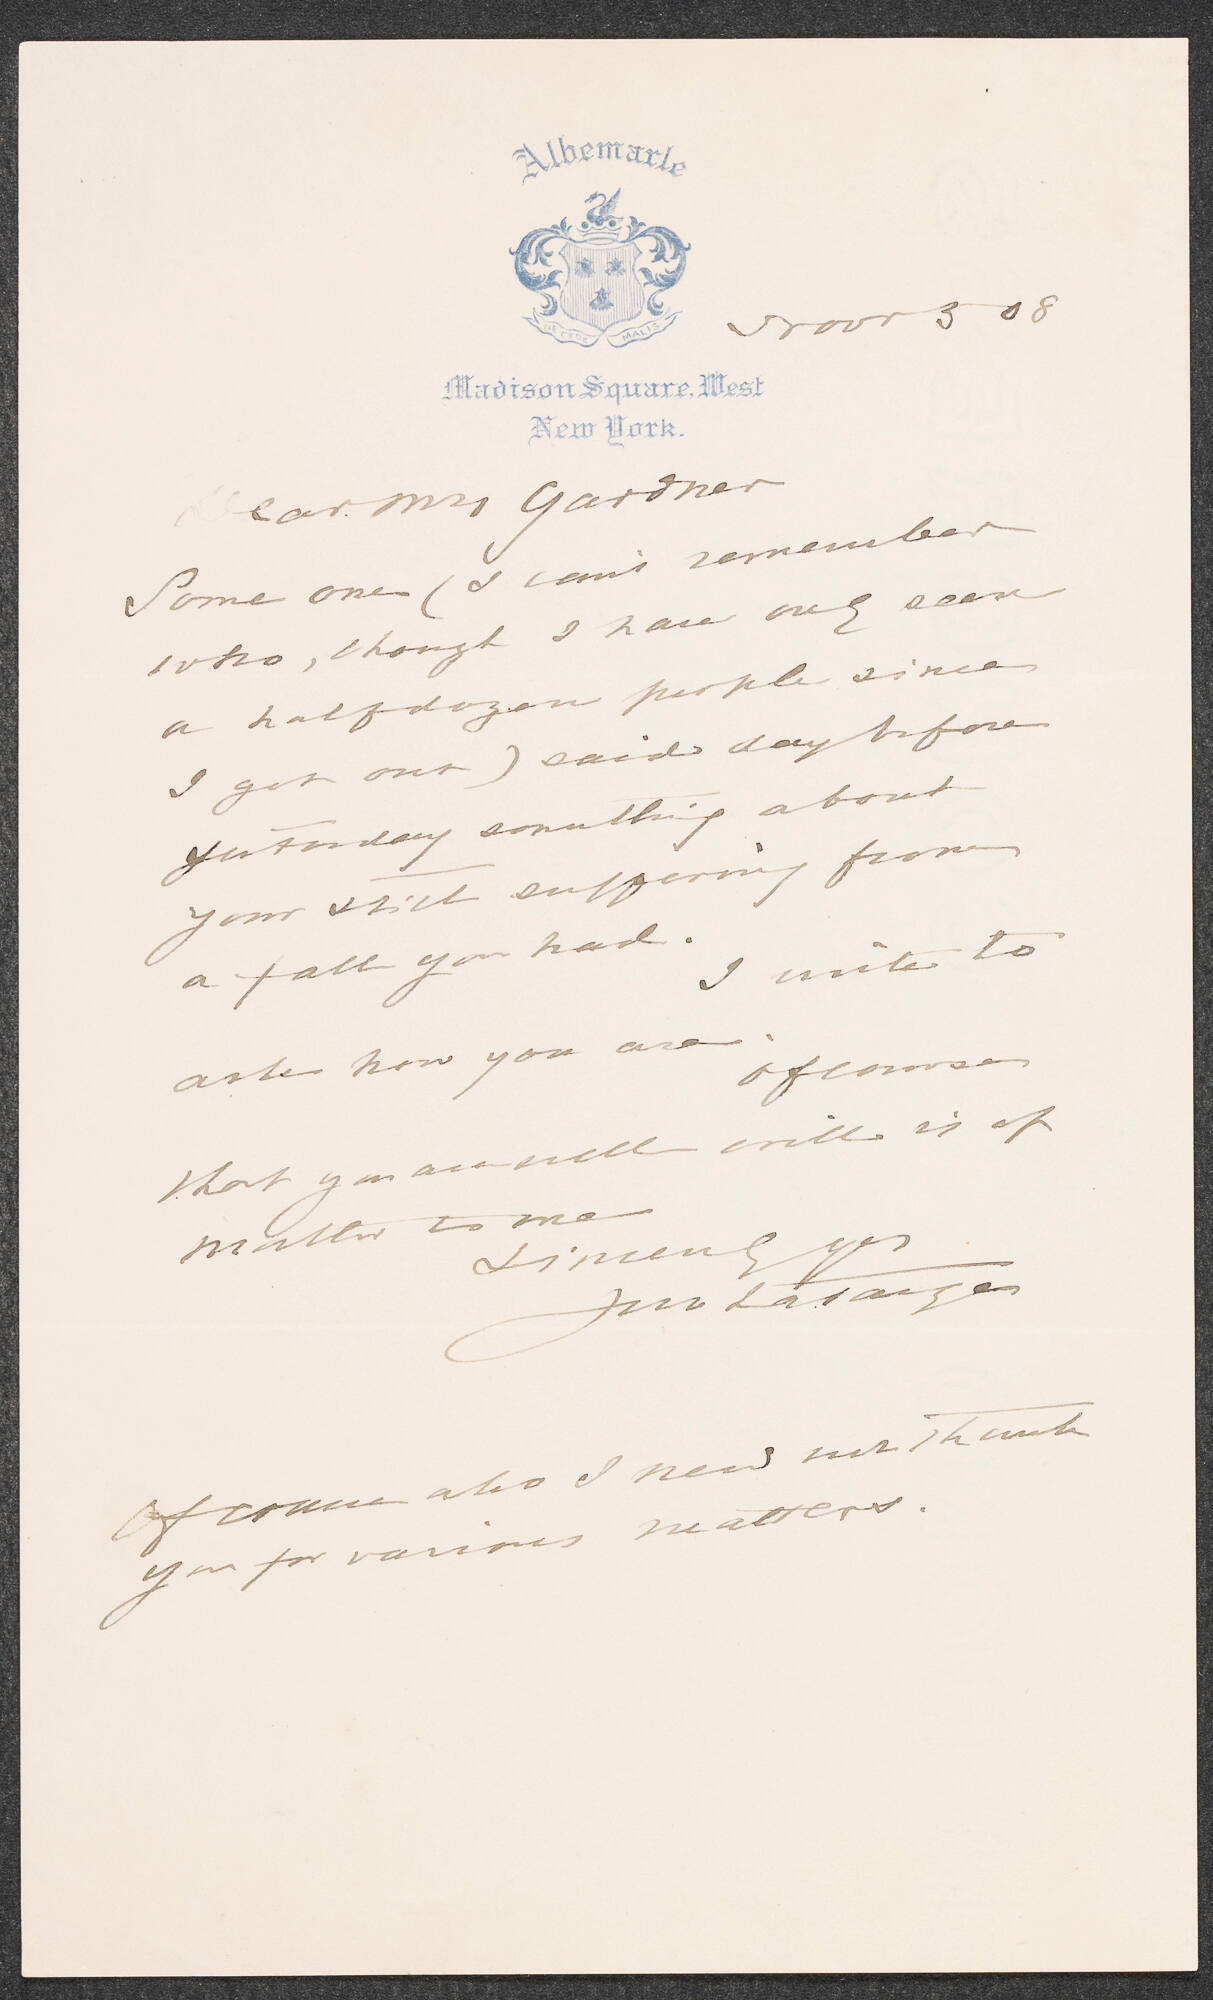 Albemarle
DE CEDE MALIS
Nov 3 08
Madison Square, West
New York.
Dear Mrs Gardner
Some one (I can't remember
who, though I have only seen
a half dozen people since
I got out) said day before
yesterday something about
your still suffering from
a fall you had.
I write to
ask how you are.
Of course
that you are well or ill is of
matter to me
Sincerely yrs
Jno LaFarge
Of course also I need not thank
you for various matters.